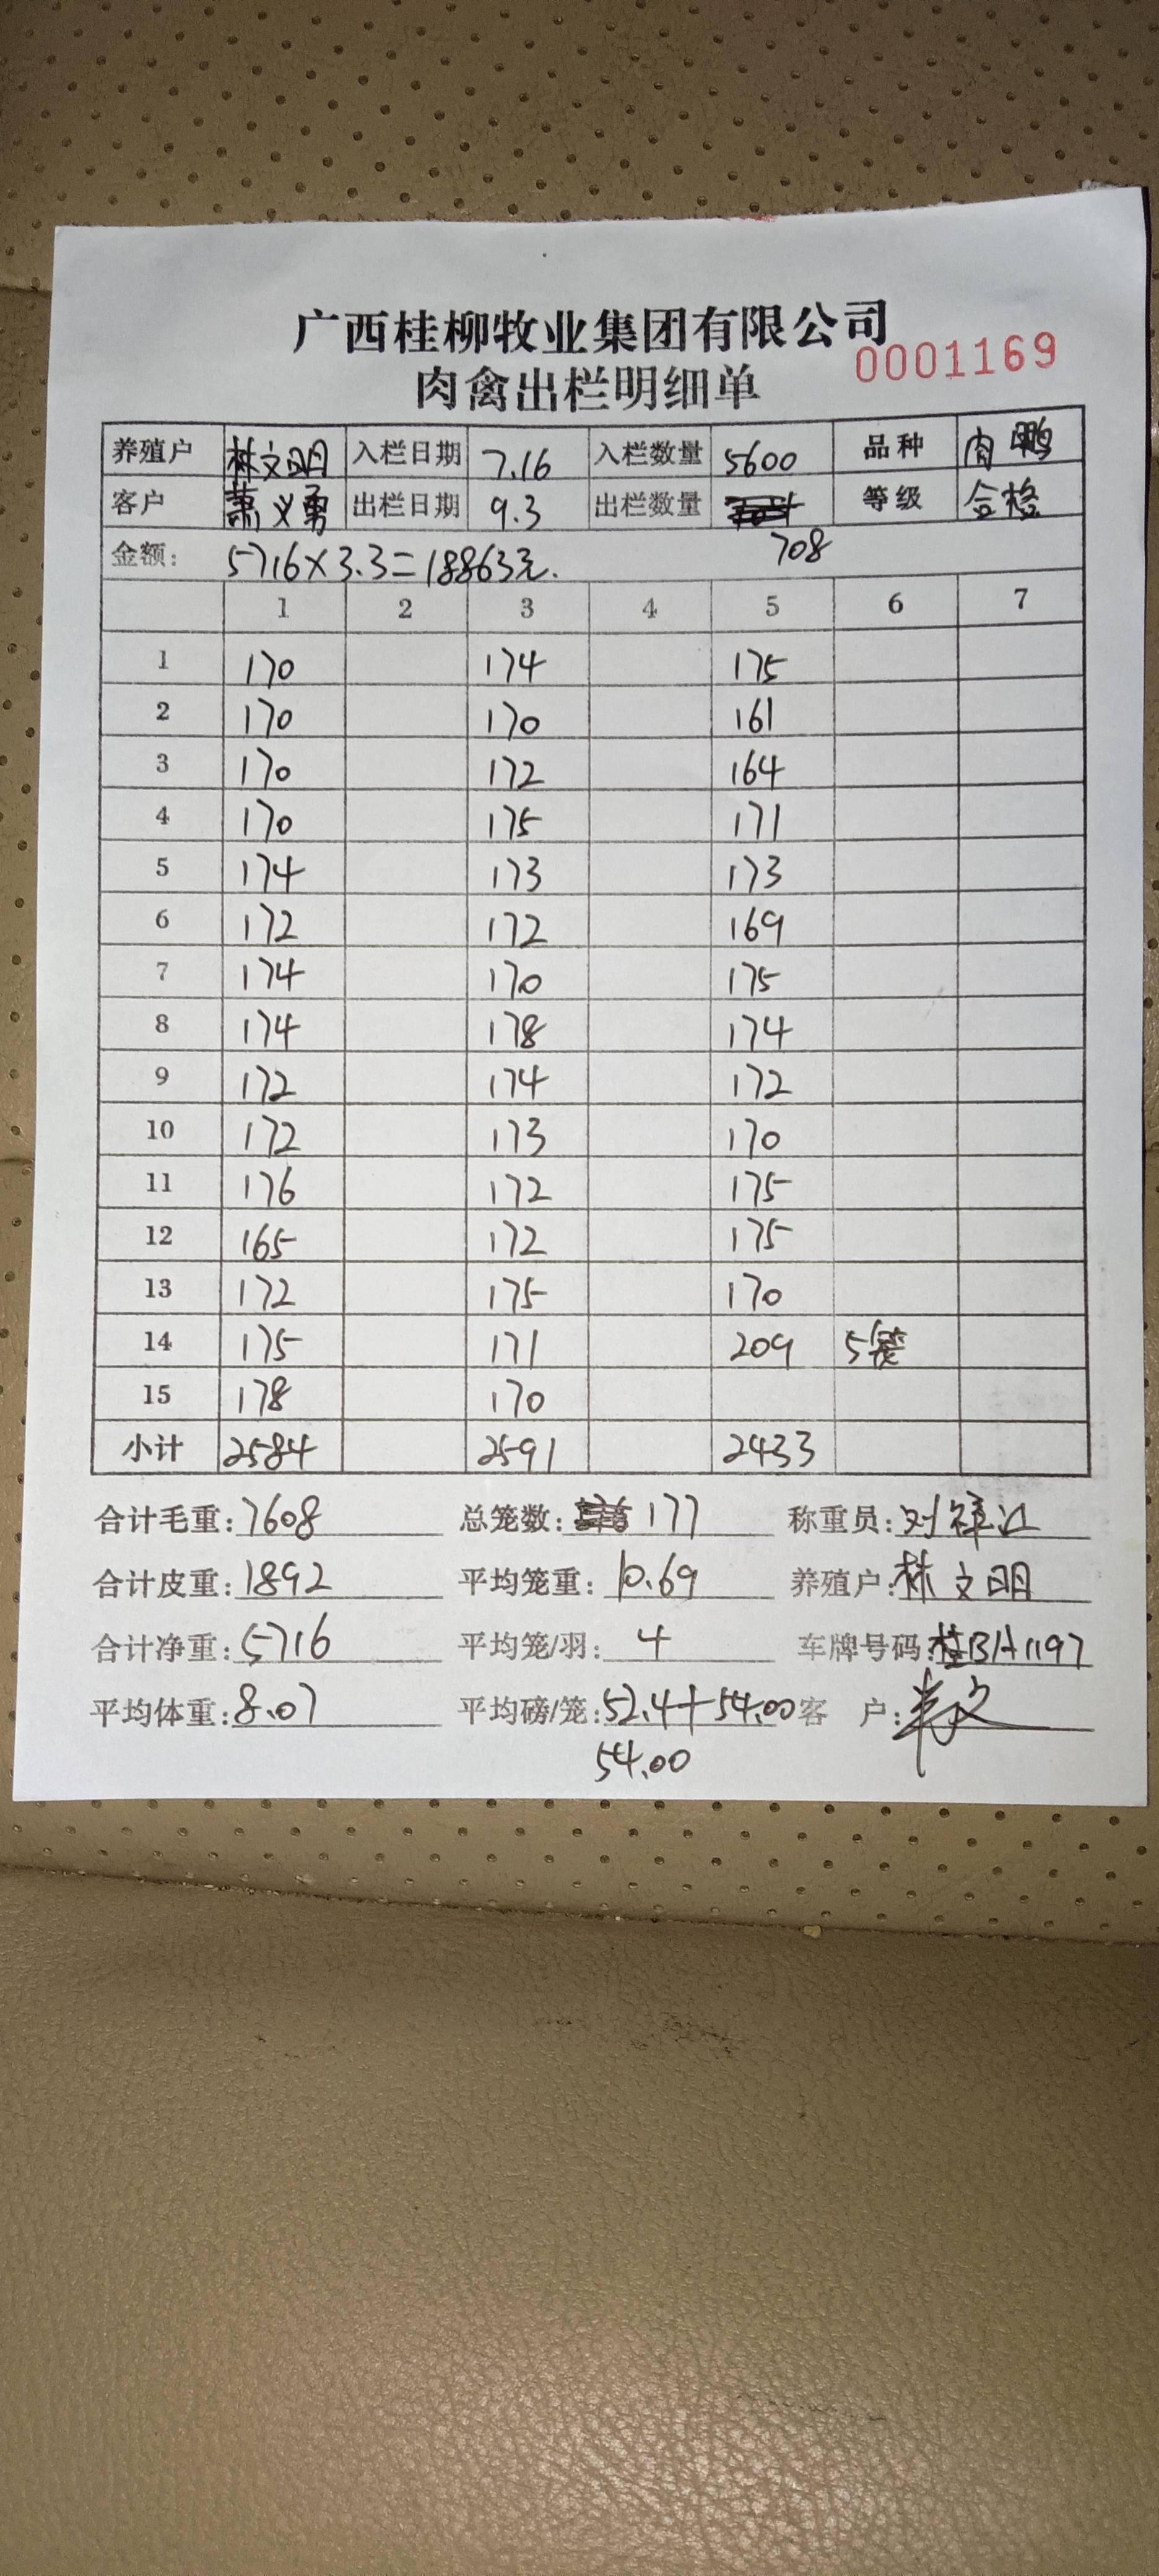 广西桂柳牧业集团有限公司
0001169
肉禽出栏明细单
养殖户 林文明 入栏日期 7.16 入栏数量 5600 品种 肉鸭
客户 萧义勇 出栏日期 9.3 出栏数量 等级 合格
708
金额: 5716×3.3=18863元.
1 2 3 4 5 6 7
1 170 174 175
2 170 170 161
3 170 172 164
4 170 175 171
5 174 173 173
6 172 172 169
7 174 170 175
8 174 178 174
9 172 174 172
10 172 173 170
11 176 172 175
12 165 172 175
13 172 175 170
14 175 171 209 5笼
15 178 170
小计 2584 2591 2433
合计毛重: 7608 总笼数: 177 称重员: 刘
合计皮重: 1892 平均笼重: 10.69 养殖户: 林文明
合计净重: 5716 平均笼/羽: 4 车牌号码: 桂BA1197
平均体重: 8.07 平均磅/笼: 52.4+54.00 客 户:
54.00